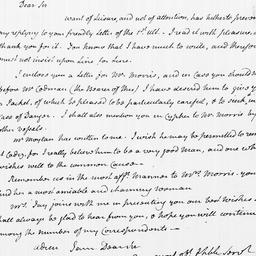 Dear Sir
want of Leisure, and not of attention, has hitherto preven
my replying to your friendly Letter of the 1st. ult. I read it with pleasure, a
thank you for it. You know that I have much to write, and therefore
must not insist upon Line for Line.
I enclose you a Letter for Mr. Morris, and in Case you should
before Mr. Codman (the Bearer of this) I have desired him to give y
Packet, of which be pleased to be particularly careful, & to sink, in
Case of Danger. I shall also mention you in Cypher to Mr. Morris by
other vessels.
has written to me. I wish he may be permitted to rem
at Cadiz, for I really believe him to be a very good Man, and one wh
wishes well to the common Cause.
Remember us in the most afft. Manner to Mrs. Morris. you
find her a most amiable and charming woman
Mrs. Jay joins with me in presenting you our best wishes. I
shall always be glad to hear from you, & hope you will continue
among the number of my Correspondents.
adieu I am Dear Sir